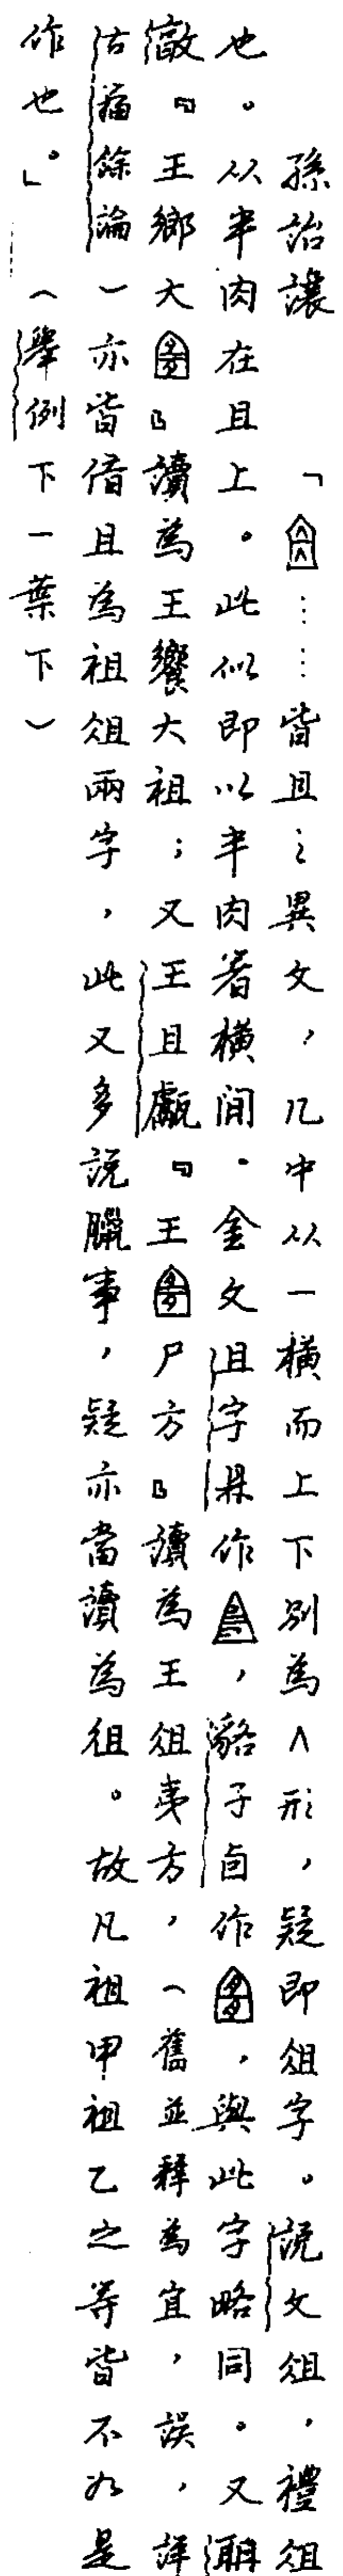 孫詒讓　「……皆且之異文，几中从一橫而上下別為∧形，疑即俎字。說文俎，禮俎
也。从半肉在且上。此似即以半肉着橫閒。金文且字鼎作，貉子卣作，與此字略同。又
『王鄉大』讀為王饗大祖；又王且甗『王尸方』讀為王徂夷方，（舊並釋為宜，誤，詳
籀餘論）亦皆借且為祖俎兩字，此又多說臘事，疑亦當讀為徂。故凡祖甲祖乙之等皆不如是
作也。」（舉例下一葉下）